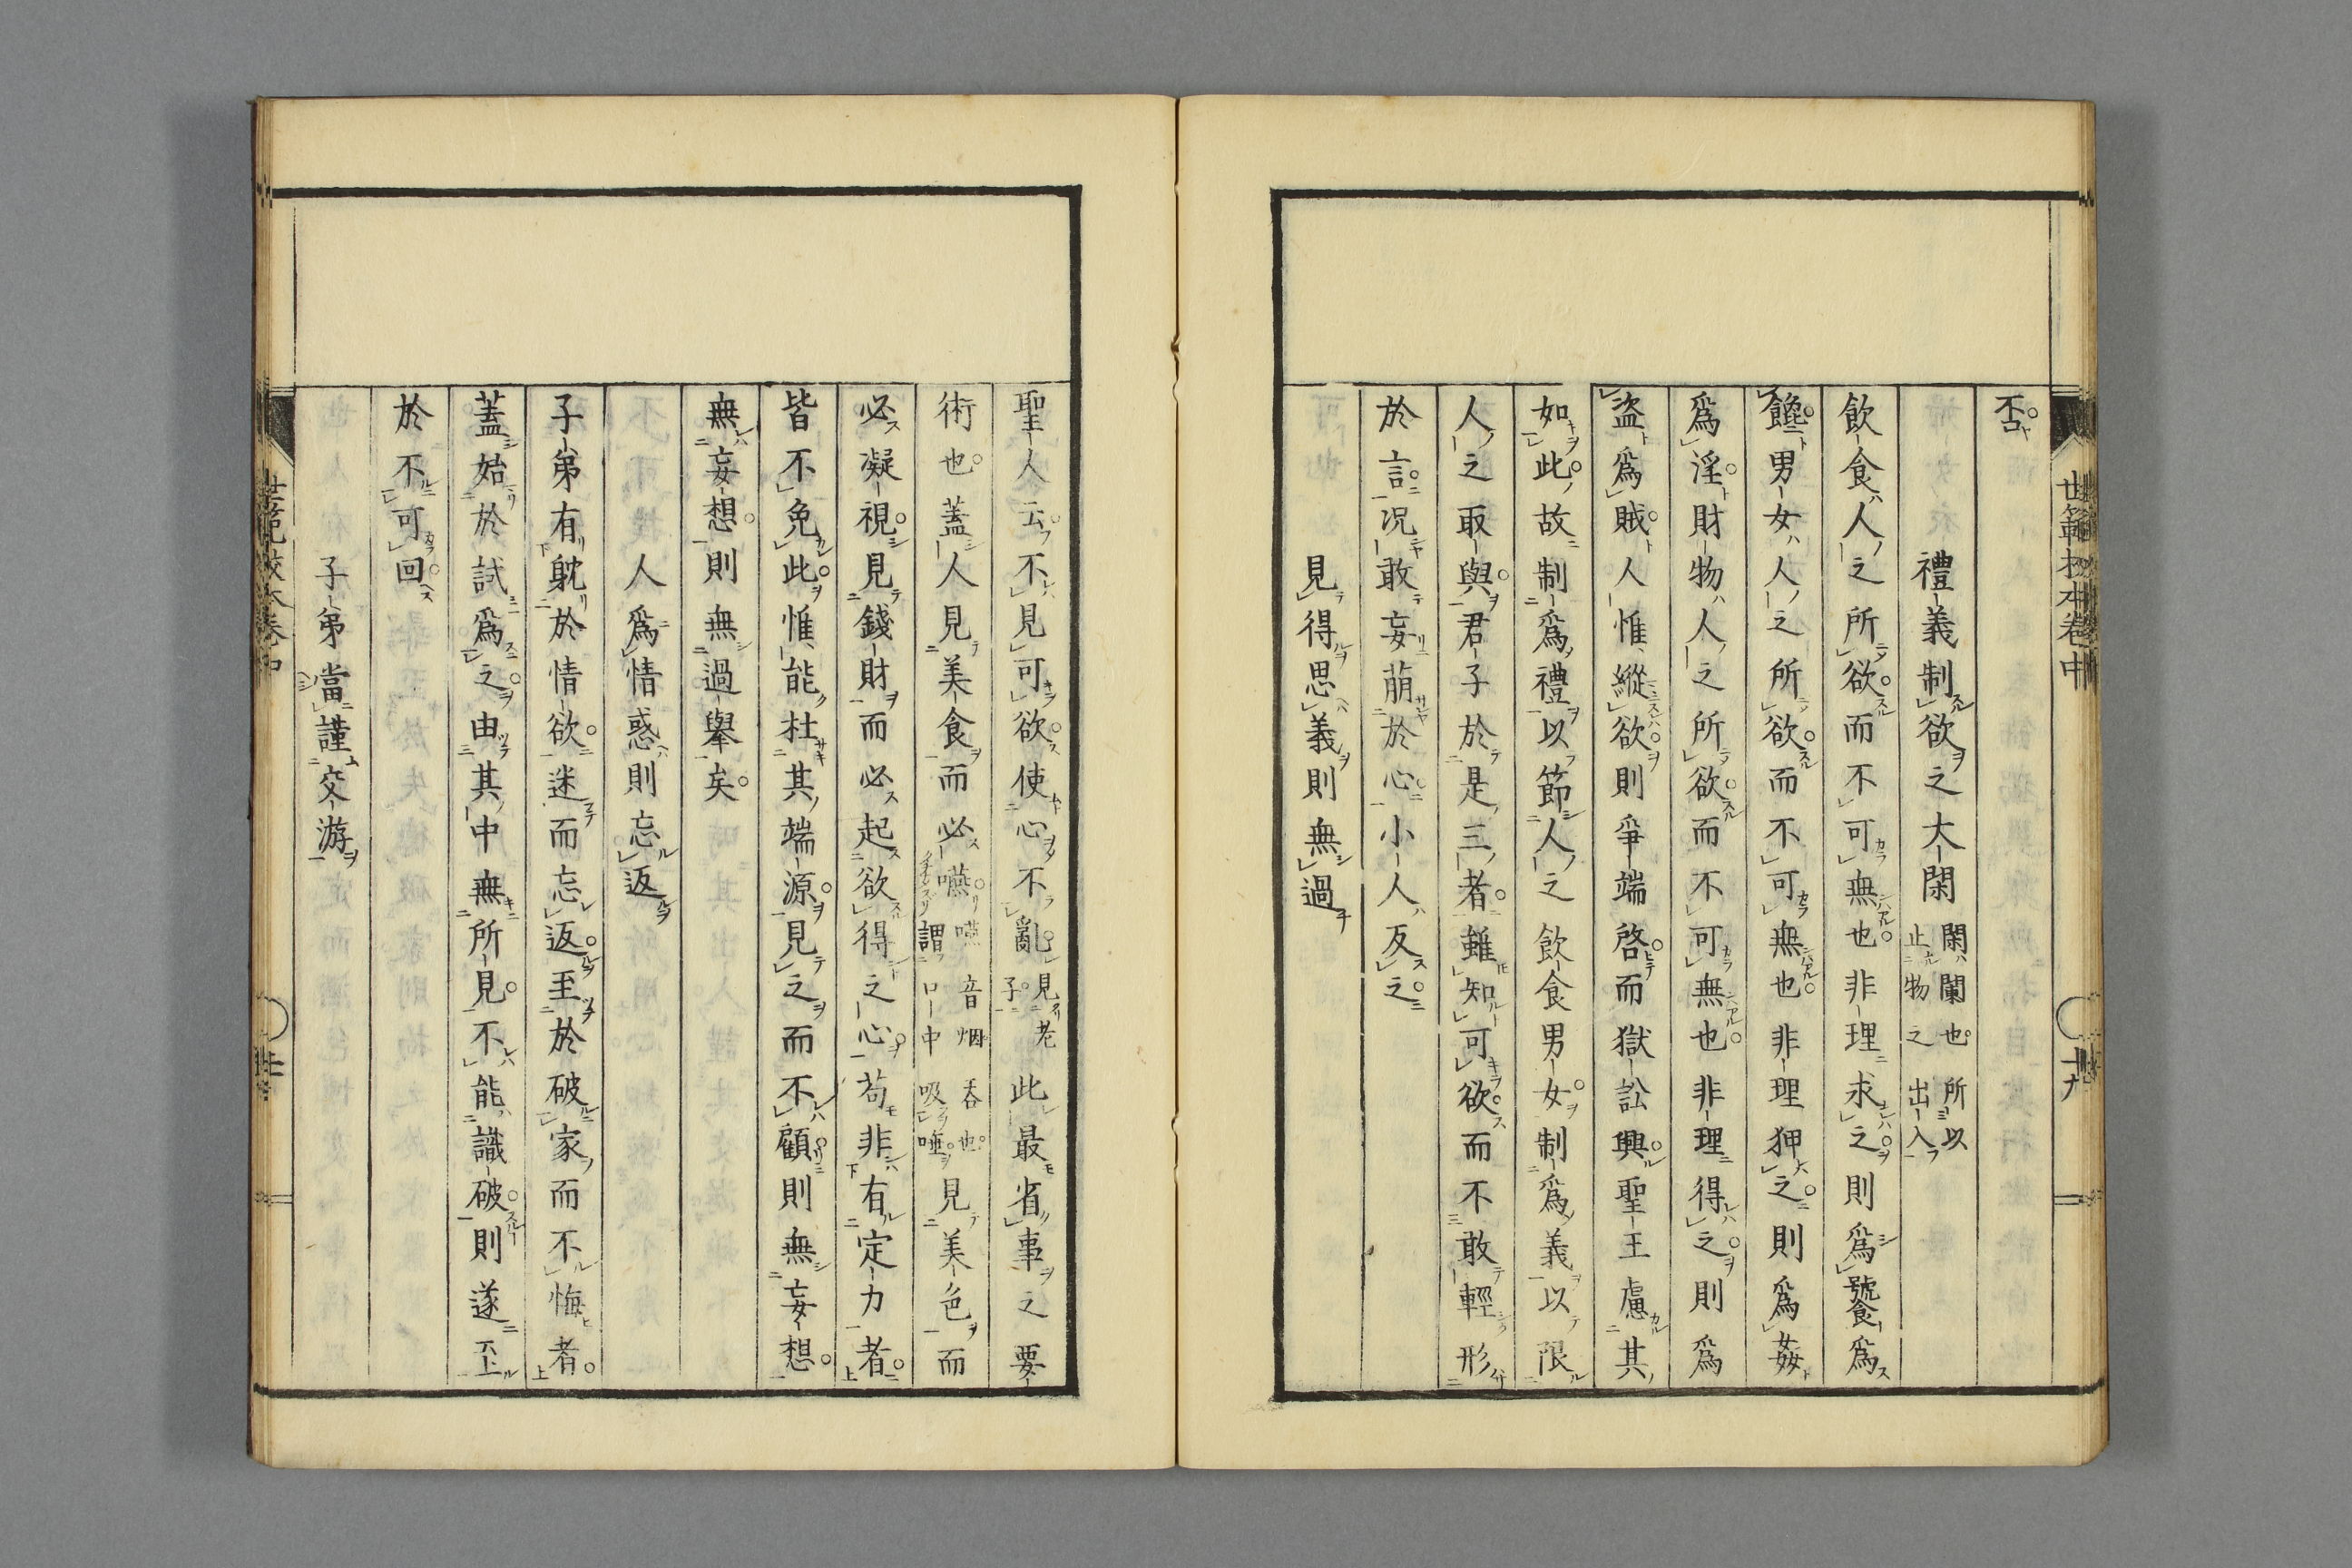 世範校本卷中
十九
否
禮義制欲之大閑 閑闌也所以止物之出入
飲食人之所欲而不可無也非理求之則爲饕爲
饞男女人之所欲而不可無也非理狎之則爲姦
爲淫財物人之所欲而不可無也非理得之則爲
盜爲賊人惟縱欲則爭端啓而獄訟興聖王慮其
如此故制爲禮以節人之飲食男女制爲義以限
人之取與君子於是三者雖知可欲而不敢輕形
於言况敢妄萠於心小人反之
見得思義則無過
聖人云不見可欲使心不亂 見老子 此最省事之要
術也蓋人見美食而必嚥 嚥音烟吞也謂口中吸唾 見美色而
必凝視見錢財而必起欲得之心苟非有定力者
皆不免此惟能杜其端源見之而不顧則無妄想
無妄想則無過舉矣
人爲情惑則忘返
子弟有躭於情欲迷而忘返至於破家而不悔者
蓋始於試爲之由其中無所見不能識破則遂至
於不可回
子弟當謹交游
世範校本卷中